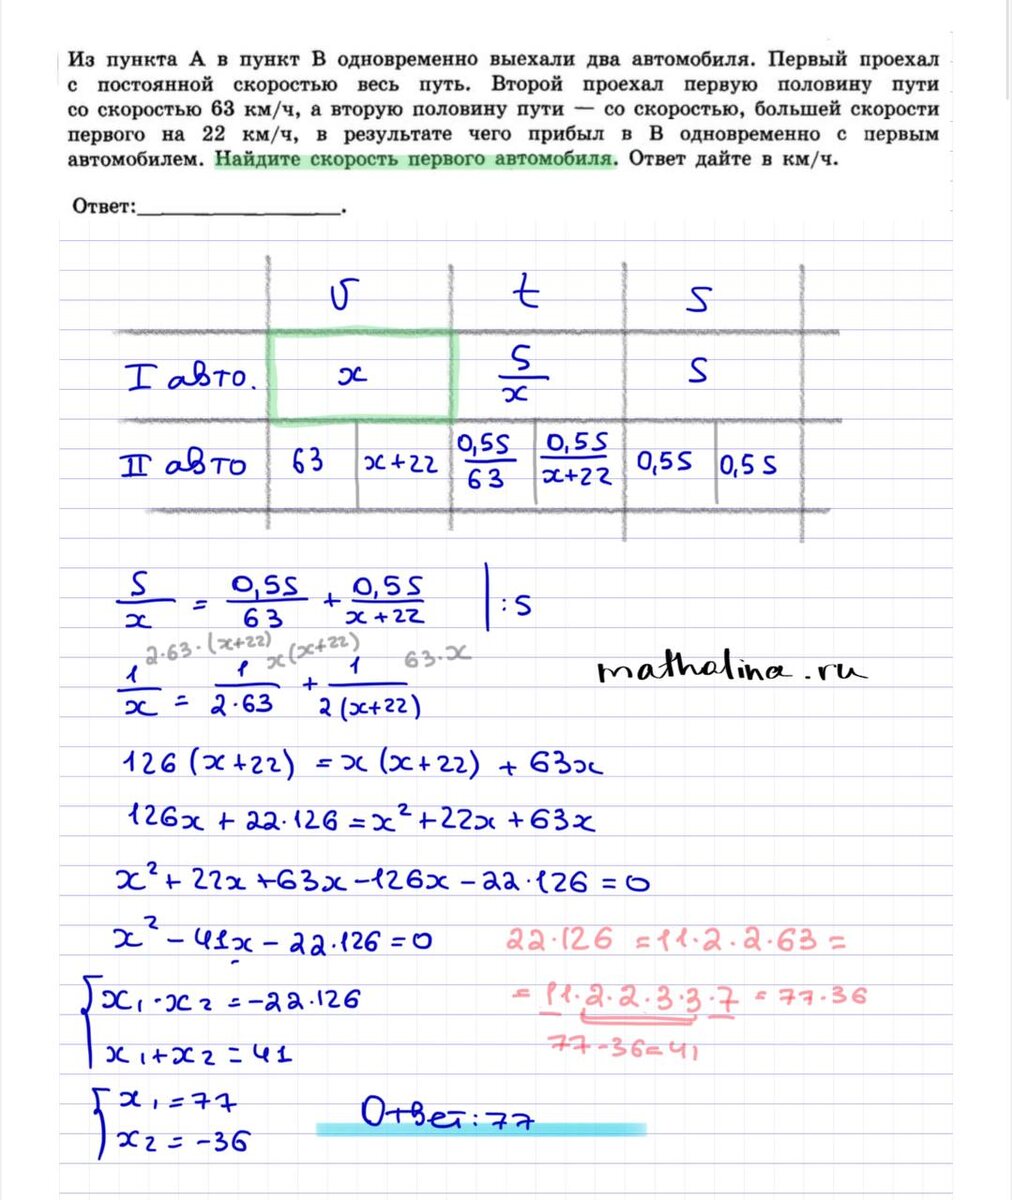 Из пункта А в пункт В одновременно выехали два автомобиля. Первый проехал
с постоянной скоростью весь путь. Второй проехал первую половину пути
со скоростью 63 км/ч, а вторую половину пути — со скоростью, большей скорости
первого на 22 км/ч, в результате чего прибыл в В одновременно с первым
автомобилем. Найдите скорость первого автомобиля. Ответ дайте в км/ч.
Ответ:____________________.
v t S
I авто. x S/x S
II авто 63 x+22 0,5S/63 0,5S/(x+22) 0,5S 0,5S
S/x = 0,5S/63 + 0,5S/(x+22) | :S
2·63·(x+22) x(x+22) 63·x
1/x = 1/(2·63) + 1/(2(x+22))
mathalina.ru
126(x+22) = x(x+22) + 63x
126x + 22·126 = x² + 22x + 63x
x² + 22x + 63x - 126x - 22·126 = 0
x² - 41x - 22·126 = 0
22·126 = 11·2·2·63 =
x₁·x₂ = -22·126
= 11·2·2·3·3·7 = 77·36
x₁+x₂ = 41
77-36=41
x₁ = 77
x₂ = -36
Ответ: 77